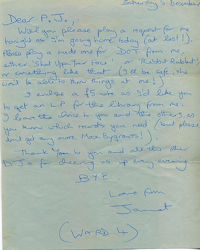 Saturday 5 December
Dear P.J.
Will you please play a request for me
tonight as I'm going home today (at last!).
Please play a rude one for DOT from me
either 'Shut Up Your Face' or 'Rabbit Rabbit'
or something like that (I'll be safe, she
won't be able to throw things at me!)
I enclose a £5 note as I'd like you
to get an L.P. for the library from me.
I leave the choice to you and the others, as
you know which records you need (but please
don't get any more Max Bygraves!).
Thank you to you and all the other
D.J.s for cheering us up every evening
BYE
Love from
Janet
(WARD 4)